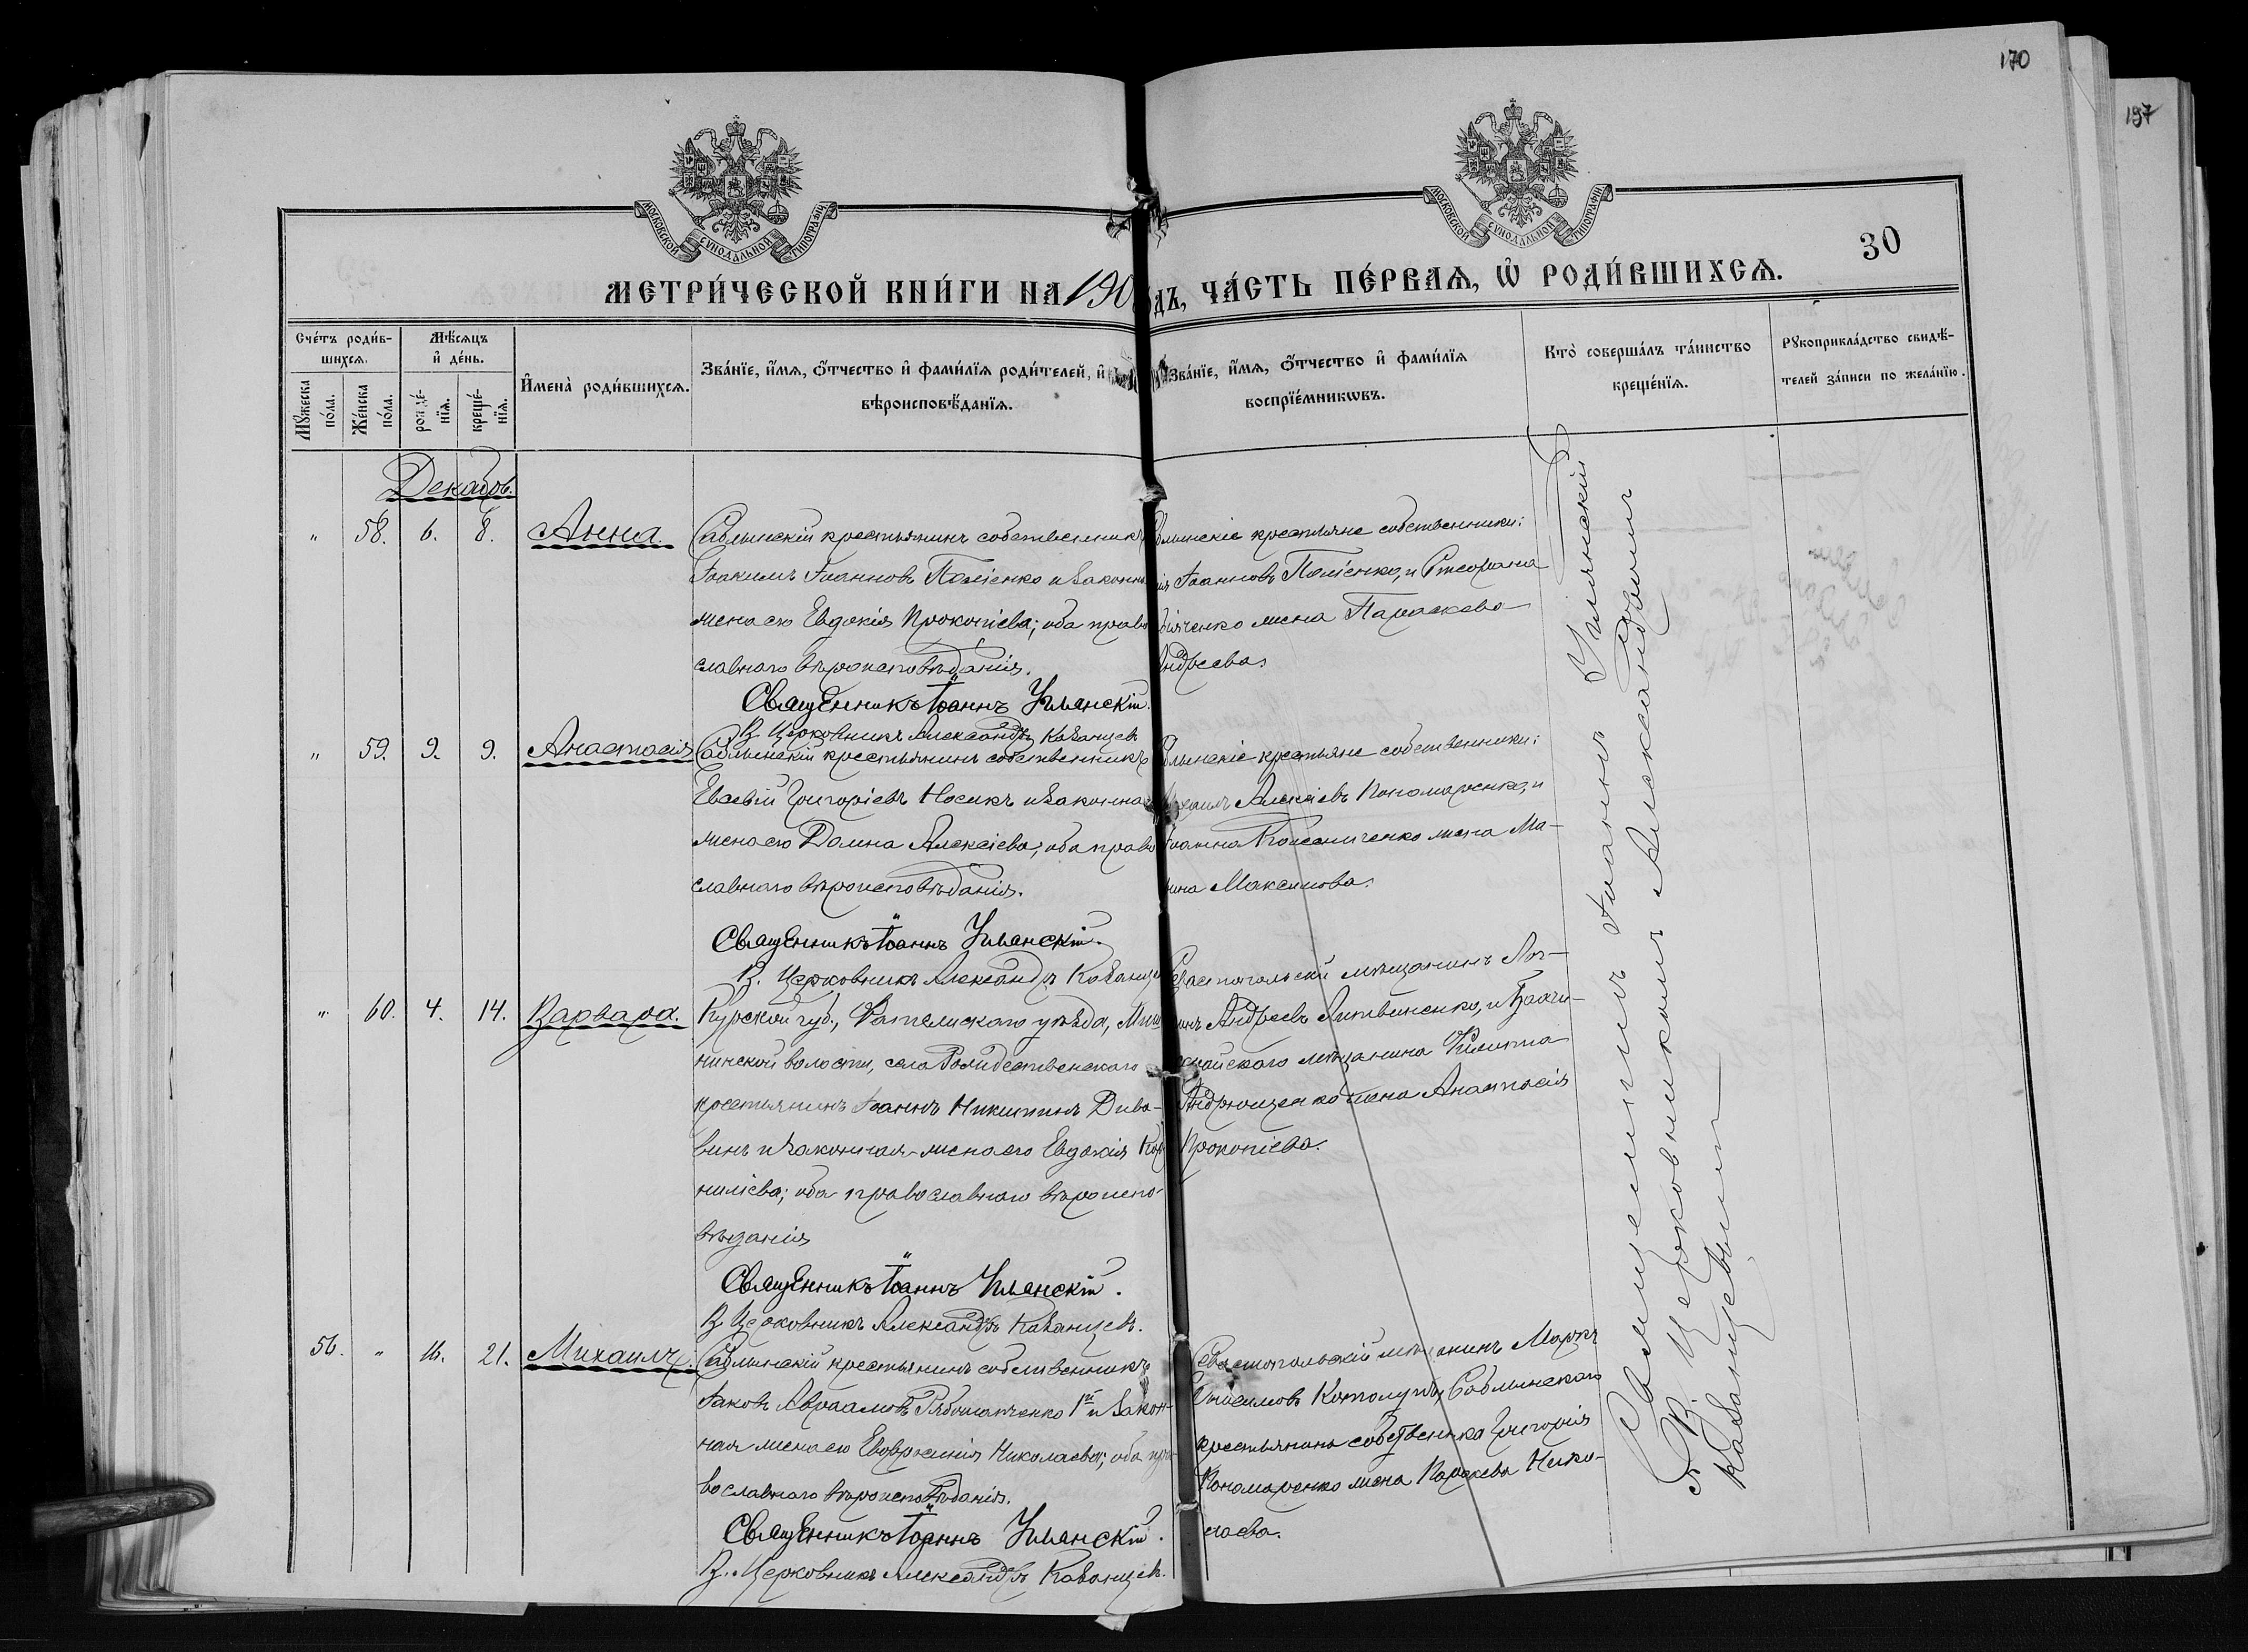 170
197
МОСКОВСКОЙ СУНОДАЛЬНОЙ ТИПОГРАФІИ
МОСКОВСКОЙ СУНОДАЛЬНОЙ ТИПОГРАФІИ
30
МЕТРИ́ЧЕСКОЙ КНИ́ГИ НА 190 дъ, ЧА́СТЬ ПЕ́РВАѦ, Ѡ РОДИ́ВШИХСѦ.
Сче́тъ роди́в-
шихсѧ.
Мꙋжеска по́ла.
Же́нска по́ла.
Мѣ́сѧцъ
и де́нь.
рожде́-нїѧ.
креще́-нїѧ.
Имена̀ роди́вшихсѧ.
Зва́нїе, и́мѧ, о́тчество и фами́лїѧ роди́телей, и
вѣроисповѣ́данїѧ.
Зва́нїе, и́мѧ, о́тчество и фами́лїѧ
воспрїе́мникѡвъ.
Кто̀ соверша́лъ та́инство
креще́нїѧ.
Рꙋкоприкла́дство свидѣ́-
телей за́писи по жела́нїю.
Декабрь.
" 58. 6. 8. Анна.
Саблынскій крестьянинъ собственникъ
Іоакимъ Іоанновъ Поліенко и законн
жена его Евдокія Прокопіева; оба право
славнаго вѣроисповѣданія.
Священникъ Іоаннъ Уманскій.
В. Церковникъ Александръ Казанцевъ
блынскіе крестьяне собственники:
Іоанновъ Поліенко, и Стефана
ченко жена Параскева
Андреева.
" 59. 9. 9. Анастасія
Саблынскій крестьянинъ собственникъ
Евсевій Григоріевъ Носикъ и законная
жена его Домна Алексіева; оба право
славнаго вѣроисповѣданія.
Священникъ Іоаннъ Уманскій.
В. Церковникъ Александръ Казанце
блынскіе крестьяне собственники:
Алексіевъ Пономаренко, и
Іоанна жена Ма-
рина Максимова.
" 60. 4. 14. Варвара.
Курской губ., Фатежскаго уѣзда,
нинской волости, села Рождественскаго
крестьянинъ Іоаннъ Никитинъ Дива-
винъ и законная жена его Евдокія Кор
ниліева; оба православнаго вѣроиспо-
вѣданія
Священникъ Іоаннъ Уманскій.
В. Церковникъ Александръ Казанцевъ.
Севастопольскій мѣщанинъ Лог-
инъ Андреевъ Литвиненко, и Бахчи-
сарайскаго мѣщанина Филиппа
Андрющенко жена Анастасія
Прокопіева.
56. " 16. 21. Михаилъ.
Саблынскій крестьянинъ собственникъ
Іаковъ Авраамовъ Рябошапченко 1й и закон-
ная жена его Евфросинія Николаева; оба пра-
вославнаго вѣроисповѣданія.
Священникъ Іоаннъ Уманскій.
В. Церковникъ Александръ Казанцевъ.
Севастопольскій мѣщанинъ Маркъ
Онисимовъ Саблынскаго
крестьянина собственника Григорія
Пономаренко жена Параскева Нико-
лаева.
Священникъ Іоаннъ Уманскій
съ В. Церковникомъ Александромъ
Казанцевымъ